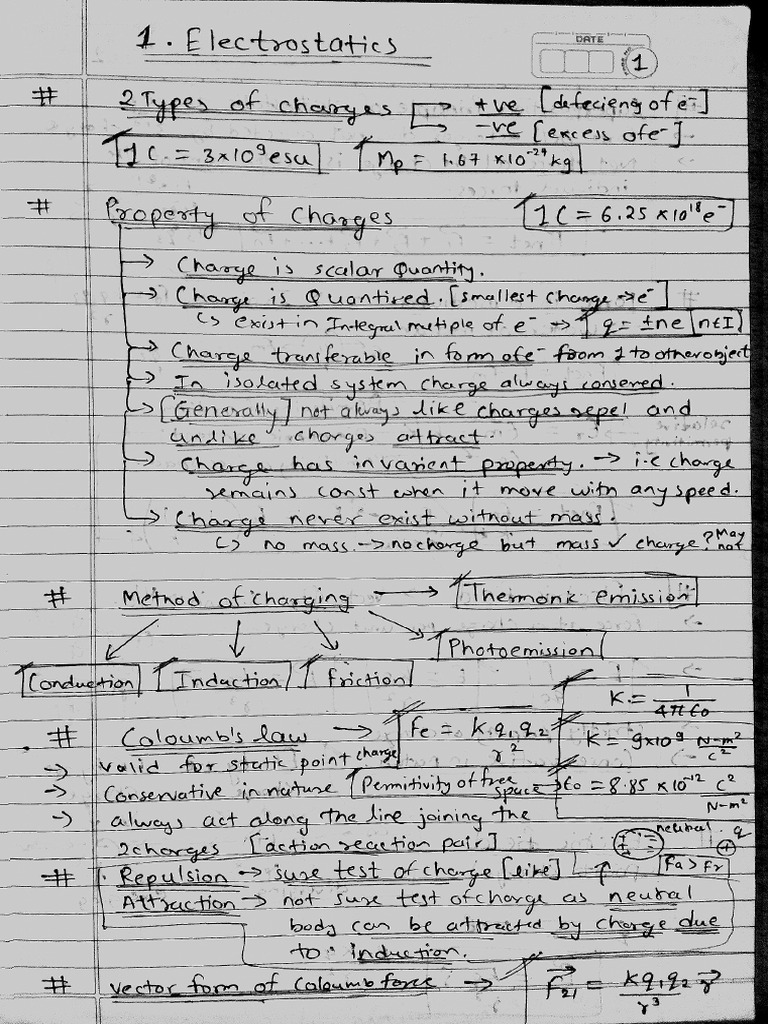 1. Electrostatics
DATE
1
# 2 Types of charges → +ve [defeciency of e⁻]
→ -ve [excess of e⁻]
1 C = 3×10⁹ esu Mp = 1.67 ×10⁻²⁹ kg
# Property of Charges 1C = 6.25 ×10¹⁸ e⁻
→ Charge is scalar Quantity.
→ Charge is Quantized. [smallest charge → e⁻]
↳ exist in Integral multiple of e⁻ → q = ±ne [n∈I]
→ Charge transferable in form of e⁻ from 1 to other object
→ In isolated system charge always conserved.
→ [Generally] not always like charges repel and
unlike charges attract
→ Charge has invarient property. → i.e charge
remains const when it move with any speed.
→ Charge never exist without mass.
↳ no mass → no charge but mass ✓ charge? May not
# Method of charging → Thermonic emission
Photoemission
Conduction Induction Friction
K = 1/4πϵ₀
# Coloumb's law → Fe = K q₁ q₂/r² K = 9×10⁹ N-m²/c²
→ valid for static point charge
→ Conservative in nature Permitivity of free space → ϵ₀ = 8.85 ×10⁻¹² C²/N-m²
→ always act along the line joining the
neutral q
2 charges [action reaction pair] + Fa > Fr
# Repulsion → sure test of charge [like]
Attraction → not sure test of charge as neutral
body can be attracted by charge due
to induction.
# vector form of Coloumb force → F⃗₂₁ = Kq₁q₂ r⃗/r³